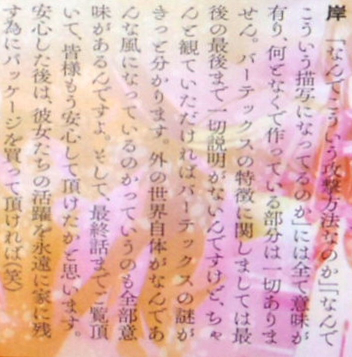 岸 「なんでこういう攻撃方法なのか」「なんで
こういう描写になってるのか」には全て意味が
有り、何となくで作っている部分は一切ありま
せん。バーテックスの特徴に関しましては最
後の最後まで一切説明がないんですけど、ちゃ
んと観ていただければバーテックスの謎が
きっと分かります。外の世界自体がなんであ
んな風になっているのかっていうのも全部意
味があるんですよ。そして、最終話までご覧頂
いて、皆様もう安心して頂けたかと思います。
安心した後は、彼女たちの活躍を永遠に家に残
す為にパッケージを買って頂ければ(笑)